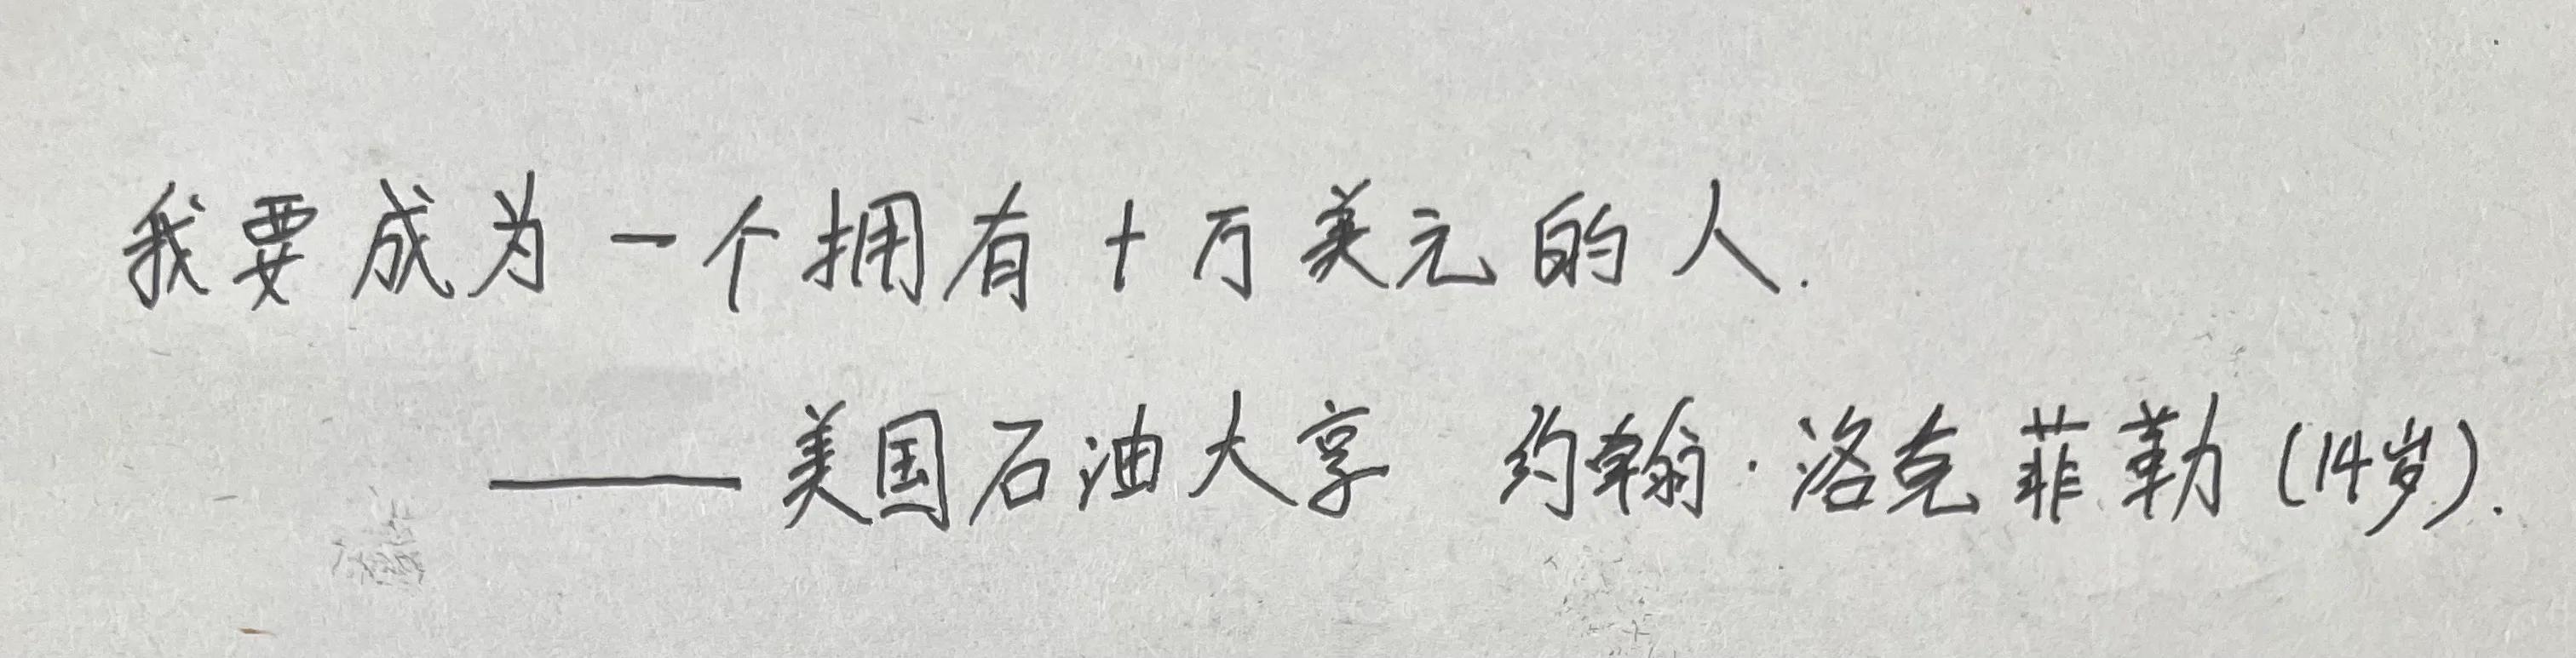 我要成为一个拥有十万美元的人.
——美国石油大享 约翰·洛克菲勒(14岁).